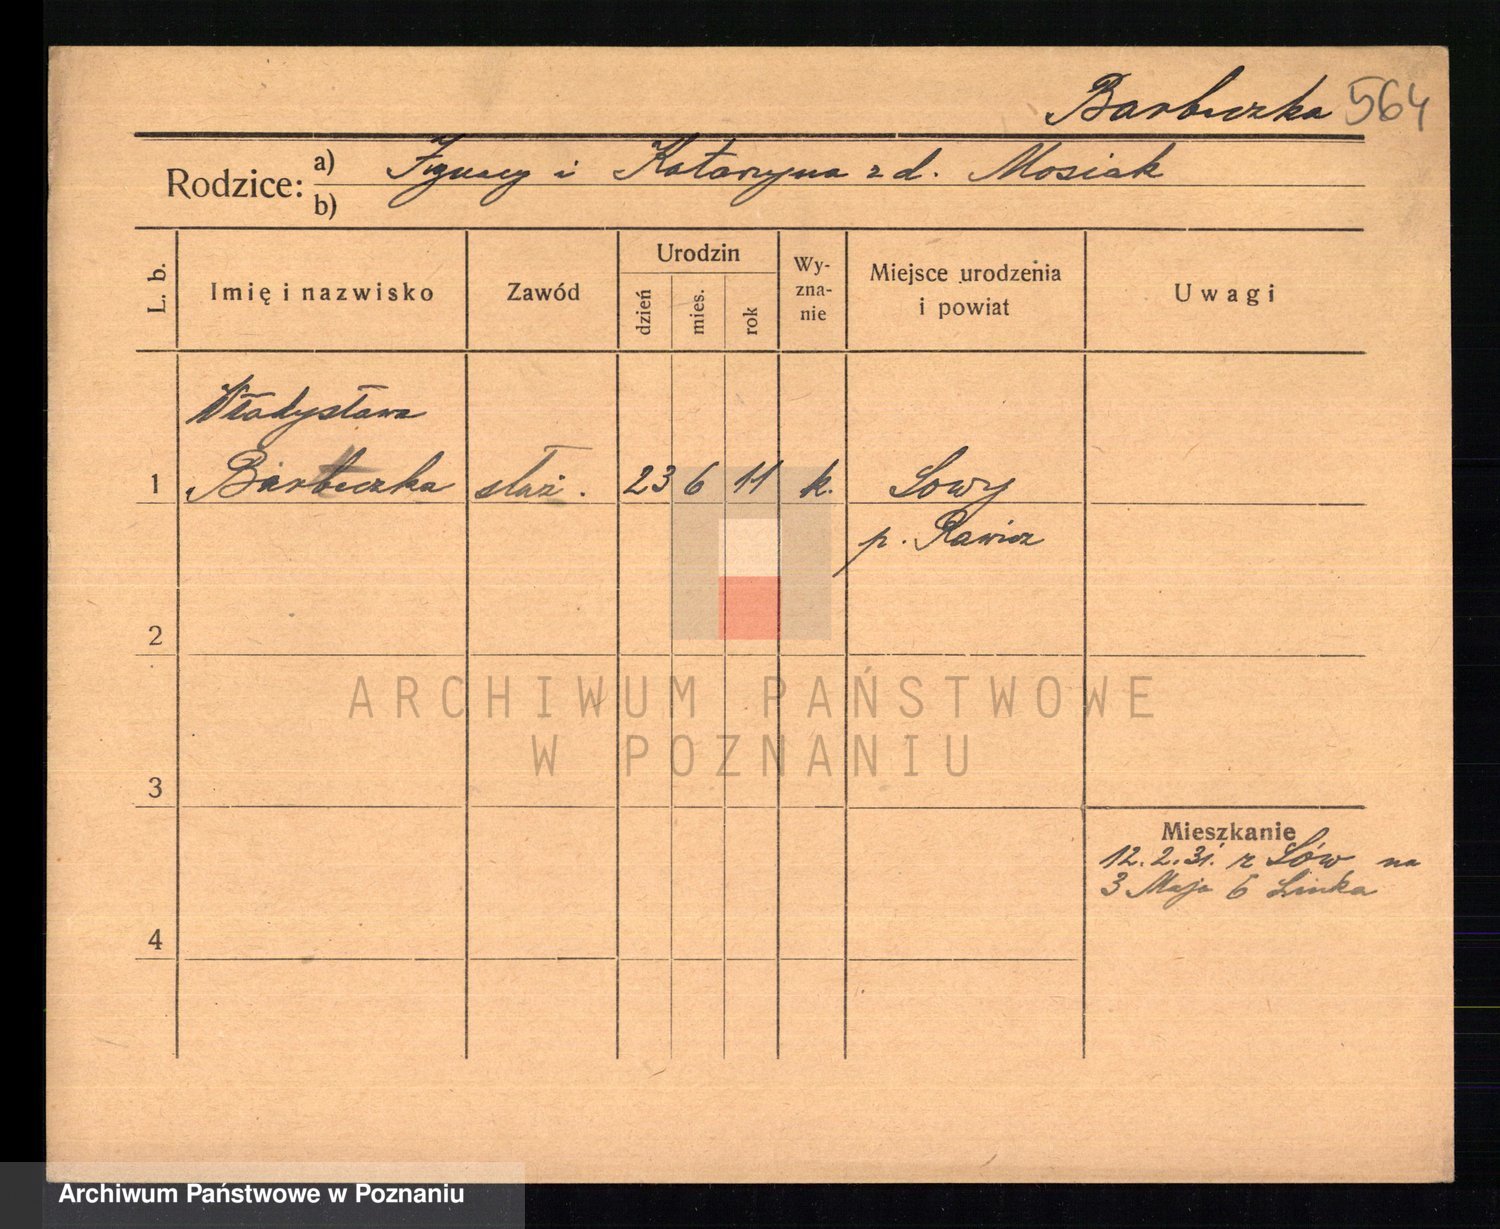 Barteczka 564
Rodzice: a) Ignacy i Katarzyna z d. Mosiak
b)
L. b.
Imię i nazwisko
Zawód
Urodzin
dzień
mies.
rok
Wy-
zna-
nie
Miejsce urodzenia
i powiat
Uwagi
Władysława
1 Barteczka służ. 23 6 11 k. Sowy
p. Rawicz
2
ARCHIWUM PAŃSTWOWE
W POZNANIU
3
Mieszkanie
12.2.31. z na
3 Maja 6 Linka
4
Archiwum Państwowe w Poznaniu